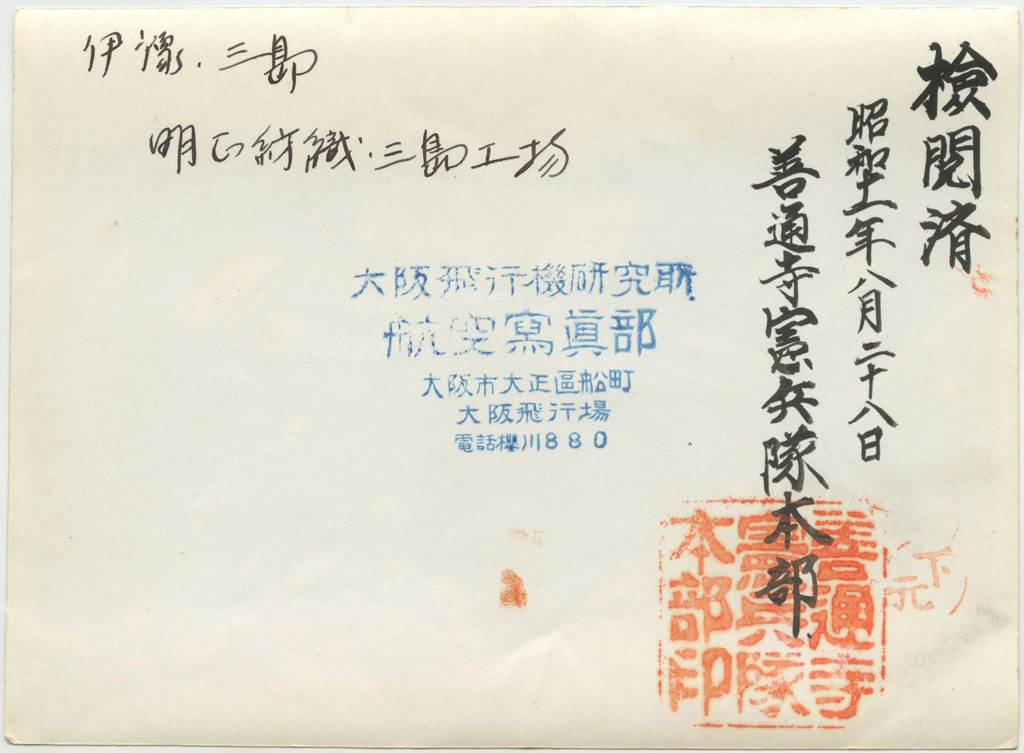 伊豫.三島
明正紡織.三島工場
檢閲済
昭和十一年八月二十八日
善通寺憲兵隊本部
大阪飛行機研究所
航空寫眞部
大阪市大正區船町
大阪飛行場
電話櫻川880
善通寺
憲兵隊
本部印
下元